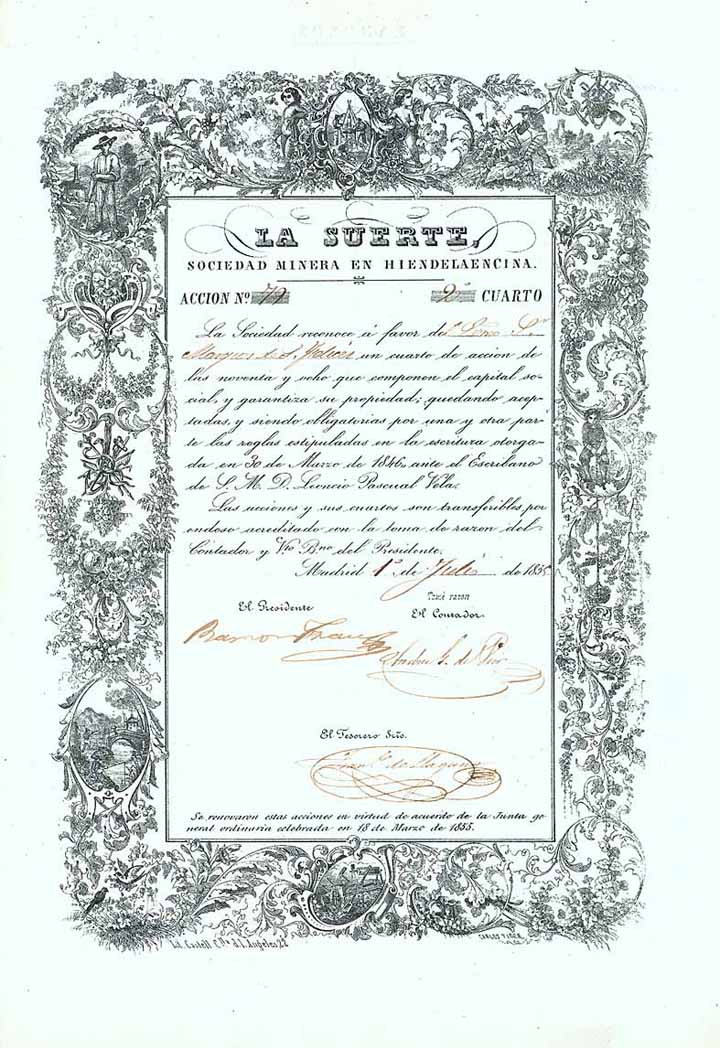 LA SUERTE,
SOCIEDAD MINERA EN HIENDELAENCINA.
ACCION Nº 72 2º CUARTO
La Sociedad reconoce á favor del Excmo Sr.
Marques de S. Felices un cuarto de accion de
las noventa y ocho que componen el capital so-
cial, y garantiza su propiedad; quedando acep-
tadas, y siendo obligatorias por una y otra par-
te las reglas estipuladas en la escritura otorga-
da en 30 de Marzo de 1846, ante el Escribano
de S. M. D. Leoncio Pascual Vela.
Las acciones y sus cuartos son transferibles por
endoso acreditado con la toma de razon del
Contador y Vto. Bno. del Presidente.
Madrid 1º de Julio de 1855
Tomé razon
El Presidente El Contador
Ramon
G. del
El Tesorero Srio.
Franco. de
Se renovaron estas acciones en virtud de acuerdo de la Junta ge
neral ordinaria celebrada en 18 de Marzo de 1855.
Lit. Castell, Clla. d. l. Angeles 22